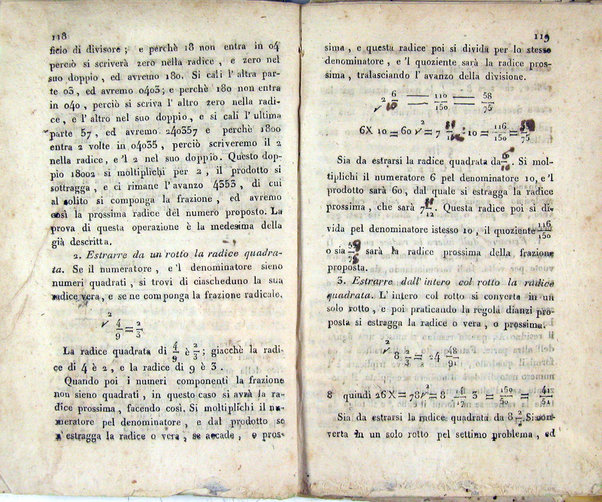 118
ficio di divisore ; e perchè 18 non entra in 04
perciò si scriverà zero nella radice , e zero nel
suo doppio , ed avremo 180. Si cali l' altra par-
te 03 , ed avremo 0403; e perchè 180 non entra
in 040 , perciò si scriva l' altro zero nella radi-
ce , e l' altro nel suo doppio , e si cali l' ultima
parte 57 , ed avremo 240357 e perchè 1800
entra 2 volte in 04035 , perciò scriveremo il 2
nella radice , e 'l 2 nel suo doppio. Questo dop-
pio 18002 si moltiplichi per 2 , il prodotto si
sottragga , e ci rimane l' avanzo 4353 , di cui
al solito si componga la frazione , ed avremo
così la prossima radice del numero proposto. La
prova di questa operazione è la medesima della
già descritta.
2. Estrarre da un rotto la radice quadra-
ta. Se il numeratore , e 'l denominatore sieno
numeri quadrati , si trovi di ciascheduno la sua
radice vera, e se ne componga la frazione radicale.
√2 4/9 = 2/3
La radice quadrata di 4/9 è 2/3 ; giacchè la radi-
ce di 4 è 2 , e la radice di 9 è 3.
Quando poi i numeri componenti la frazione
non sieno quadrati , in questo caso si avrà la ra-
dice prossima , facendo così. Si moltiplichi il nu-
meratore pel denominatore , e dal prodotto se
n' estragga la radice o vera , se accade , o pros-
119
sima , e questa radice poi si divida per lo stesso
denominatore , e 'l quoziente sarà la radice pros-
sima , tralasciando l' avanzo della divisione.
√2 6/10 = 110/150 = 58/75
6X 10 = 60 √2 = 7 : 10 = 110/150 =
Sia da estrarsi la radice quadrata da 6/10 Si mol-
tiplichi il numeratore 6 pel denominatore 10, e 'l
prodotto sarà 60, dal quale si estragga la radice
prossima , che sarà 7 /12 Questa radice poi si di-
vida pel denominatore istesso 10 , il quoziente 116/150
o sia sarà la radice prossima della frazione
proposta.
3. Estrarre dall' intero col rotto la radice
quadrata. L' intero col rotto si converta in un
solo rotto , e poi praticando la regola dianzi pro-
posta si estragga la radice o vera , o prossima.
√2 8 2/3 = 24 48/51
8 quindi 26X = 78 √2 = 8 3 = 150/50 =
Sia da estrarsi la radice quadrata da 8 2/3 Si con-
verta in un solo rotto pel settimo problema , ed